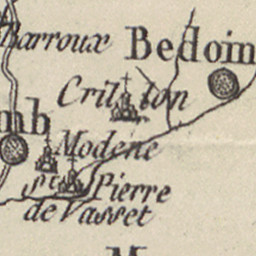 Barroux
Bedoin
Crillon
mb
Modéne
St. Pierre
de Vasset
M